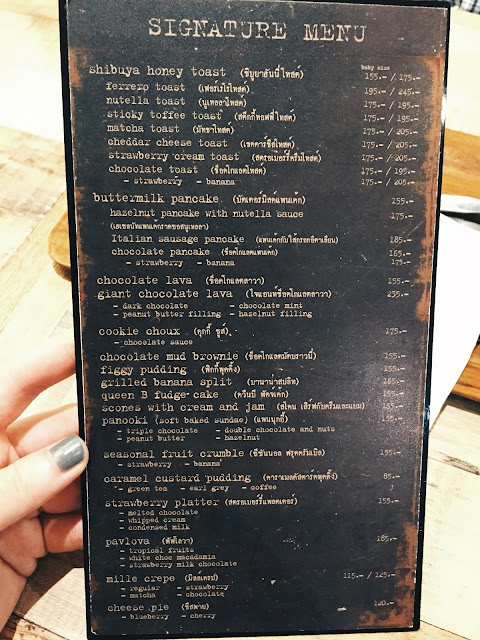 SIGNATURE MENU
baby size
shibuya honey toast (ชิบูยาฮันนี่โทสต์) 155.- / 175.-
ferrero toast (เฟอร์เรโร่โทสต์) 195.- / 245.-
nutella toast (นูเทลลาโทสต์) 175.- / 195.-
sticky toffee toast (สติ๊กกี้ทอฟฟี่โทสต์) 175.- / 195.-
matcha toast (มัทฉาโทสต์) 175.- / 205.-
cheddar cheese toast (เชดดาร์ชีสโทสต์) 175.- / 205.-
strawberry cream toast (สตรอเบอร์รี่ครีมโทสต์) 175.- / 205.-
chocolate toast (ช็อคโกแลตโทสต์) 175.- / 195.-
- strawberry - banana 175.- / 205.-
buttermilk pancake (บัตเตอร์มิลค์แพนเค้ก) 155.-
hazelnut pancake with nutella sauce 175.-
Italian sausage pancake (แพนเค้กกับไส้กรอกอิตาเลียน) 185.-
chocolate pancake (ช็อคโกแลตแพนเค้ก) 165.-
- strawberry - banana 175.-
chocolate lava (ช็อคโกแลตลาวา) 155.-
giant chocolate lava (ไจแอนท์ช็อคโกแลตลาวา) 235.-
- dark chocolate - chocolate mint
- peanut butter filling - hazelnut filling
cookie choux (คุกกี้ ชูส์) 175.-
- chocolate sauce
chocolate mud brownie (ช็อคโกแลตมัดบราวนี่) 155.-
figgy pudding (ฟิกกี้พุดดิ้ง) 155.-
grilled banana split (บานาน่าสปลิท) 165.-
queen B fudge cake (ควีนบี ฟัดจ์เค้ก) 155.-
scones with cream and jam (สโคน เสิร์ฟกับครีมและแยม) 155.-
panooki (soft baked sundae) (แพนนุกกี้) 155.-
- triple chocolate - double chocolate and nuts
- peanut butter - hazelnut
seasonal fruit crumble (ซีซันนอล ฟรุตครัมเบิล) 155.-
- strawberry - banana
caramel custard pudding (คาราเมลคัสตาร์ดพุดดิ้ง) 85.-
- green tea - earl grey - coffee
strawberry platter (สตรอเบอร์รี่แพลตเตอร์) 155.-
- melted chocolate
- whipped cream
- condensed milk
pavlova (พัฟโลวา) 185.-
- tropical fruits
- white choc macadamia
- strawberry milk chocolate
mille crepe (มิลล์เครป) 115.- / 125.-
- regular - strawberry
- matcha - chocolate
cheese pie (ชีสพาย) 120.-
- blueberry - cherry